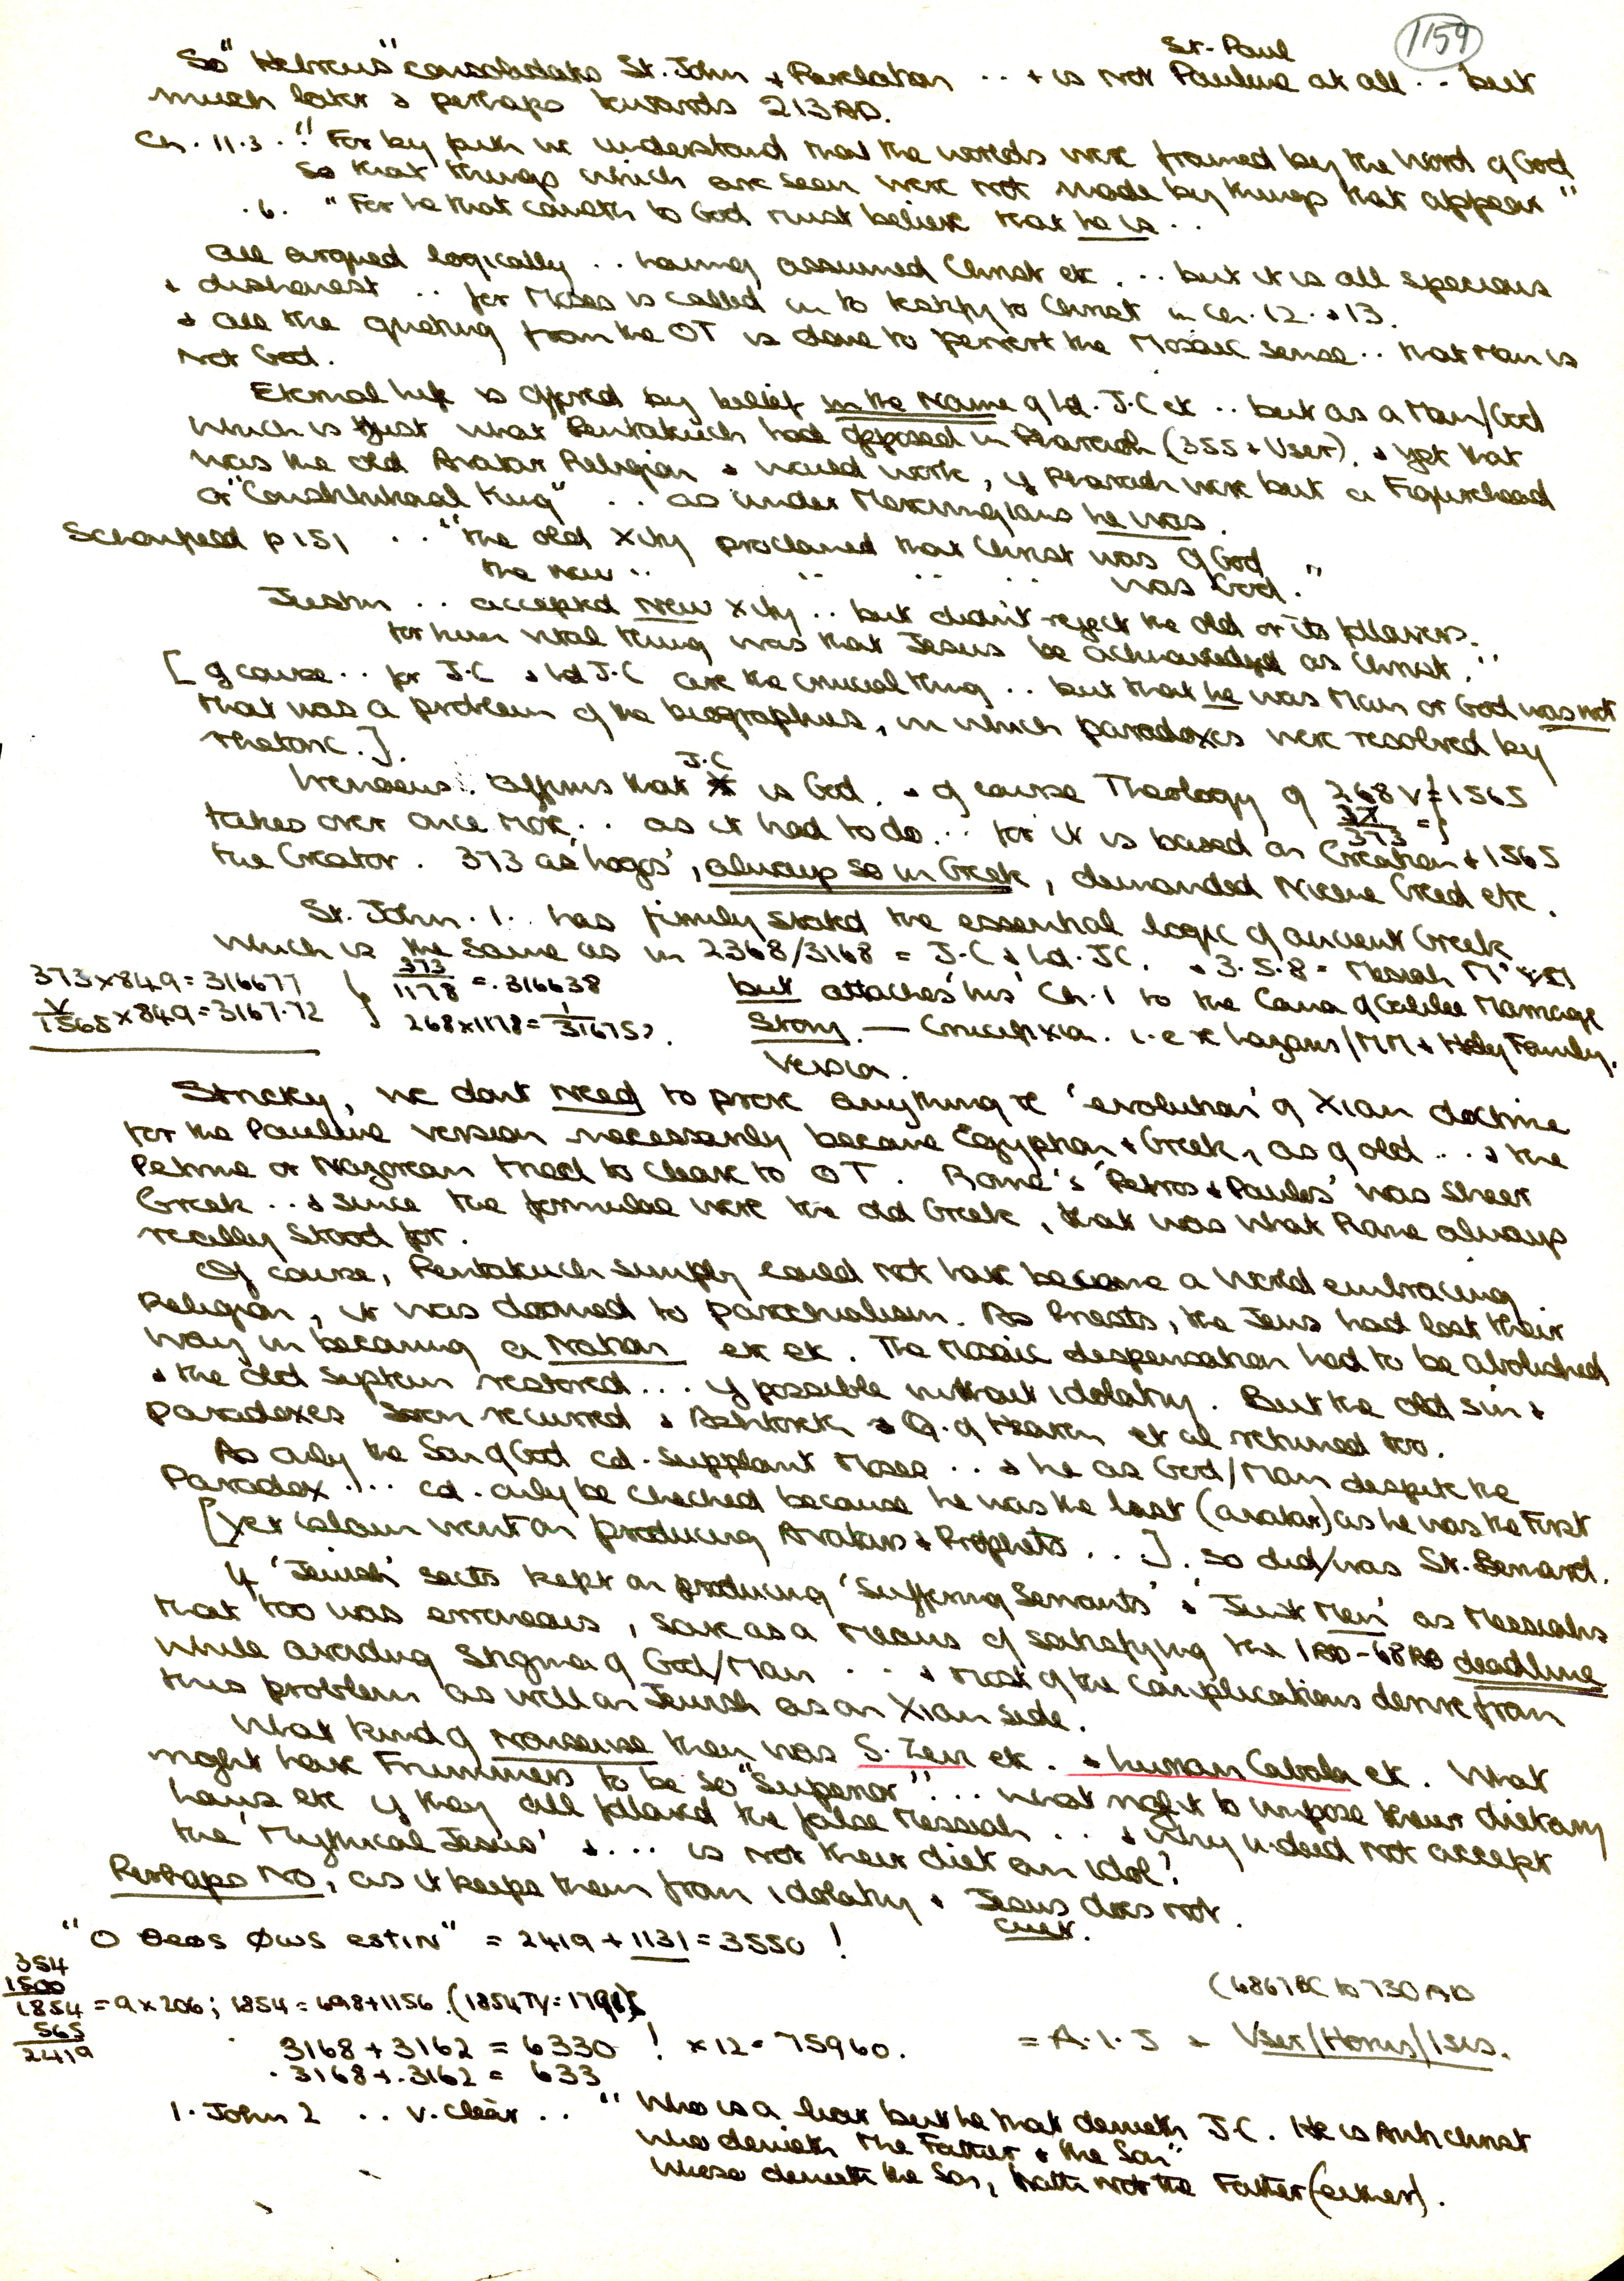 1159
St. Paul
So "Hebrews" consolidates St. John + Revelation .. + is not Pauline at all .. but
much later & perhaps towards 213 AD.
Ch. 11.3 .. "For by faith we understand that the worlds were framed by the Word of God
So that things which are seen were not made by things that appear"
.6. "For he that cometh to God must believe that he is ..
All argued logically .. having assumed Christ etc ... but it is all specious
& dishonest .. for Moses is called in to testify to Christ in Ch. 12. & 13.
& all the quoting from the OT is done to pervert the Mosaic sense .. that Man is
not God.
Eternal life is offered by belief in the Name of Ld. J.C etc .. but as a Man/God
which is just what Pentateuch had opposed in Pharaoh (355 + User). & yet that
was the old Avatar Religion & would work, if Pharaoh were but a Figurehead
or "Constitutional King" .. as under Merovingians he was.
Schonfield p 151 .. "the old Xity proclaimed that Christ was of God
the new .. .. .. .. was God."
Justin .. accepted New Xity .. but didn't reject the old or its followers.
for him vital thing was that Jesus be acknowledged as Christ."
[of course .. for J.C & Ld J.C are the crucial thing .. but that he was Man or God was not
that was a problem of the biographies, in which paradoxes were resolved by
rhetoric.].
J.C
Irenaeus .. affirms that X is God. & of course Theology of 268 V = 1565
37 = 373
takes over once more .. as it had to do ... for it is based on Creation & 1565
the Creator. 373 as 'logos', always so in Greek, demanded Nicene Creed etc.
St. John. 1. has firmly stated the essential logic of ancient Greek
which is the same as in 2368/3168 = J.C & Ld. JC. & 3.5.8 = Messiah
373 x 849 = 316677 373/1178 = .316638 but attaches 'his' Ch. 1 to the Cana of Galilee Marriage
V1565 x 849 = 3167.72 268 x 1178 = 1/31675). Story — Crucifixion. i.e re Lazarus/MM & Holy Family.
Version.
Strictly, we dont need to prove anything re 'evolution' of Xian doctrine
for the Pauline version necessarily became Egyptian & Greek, as of old ... & the
Petrine or Nazorean tried to cleave to OT. Rome's 'Petros & Paulos' was sheer
Greek .. & since the formulae were the old Greek, that was what Rome always
really stood for.
Of course, Pentateuch simply could not have become a World embracing
Religion, it was doomed to parochialism. As Priests, the Jews had lost their
way in becoming a Nation etc etc. The Mosaic dispensation had to be abolished
& the old System restored ... if possible without idolatry. But the old sin &
paradoxes soon recurred & Ashtoreth & Q. of Heaven et al returned too.
As only the Son of God cd. supplant Moses .. & he as God/Man despite the
Paradox ... cd. only be checked because he was the last (avatar) as he was the First
[Yet Islam went on producing Avatars & Prophets ..]. so did/was St. Bernard.
If 'Jewish' sects kept on producing 'Suffering Servants' & 'Just Men' as Messiahs
that too was erroneous, save as a means of satisfying the 1 AD - 68 AD deadline
while avoiding Stigma of God/Man ... & most of the complications derive from
this problem as well on Jewish as on Xian side.
What kind of Nonsense then was S. Zevi etc. & Lurian Cabala etc. What
right have Frummers to be so "Superior" ... what right to impose their dietary
laws etc if they all followed the false Messiah .. & why indeed not accept
the 'Mythical Jesus' & .... is not their diet an idol?
Perhaps No, as it keeps them from idolatry & Jesus does not.
"O Θeos Φws estin" = 2419 + 1131 = 3550 !
354
1500
1854 = 9 x 206; 1854 = 698 + 1156. (1854 TY = 1791)
565
2419
(6867 BC to 730 AD
3168 + 3162 = 6330 ! x 12 = 75960. = A.I.J & User/Horus/Isis.
.3168 + .3162 = 633
1. John 2 .. v. clear .. "Who is a liar but he that denieth J.C. He is Antichrist
who denieth the Father & the Son"
Whoso denieth the Son, hath not the Father (either).